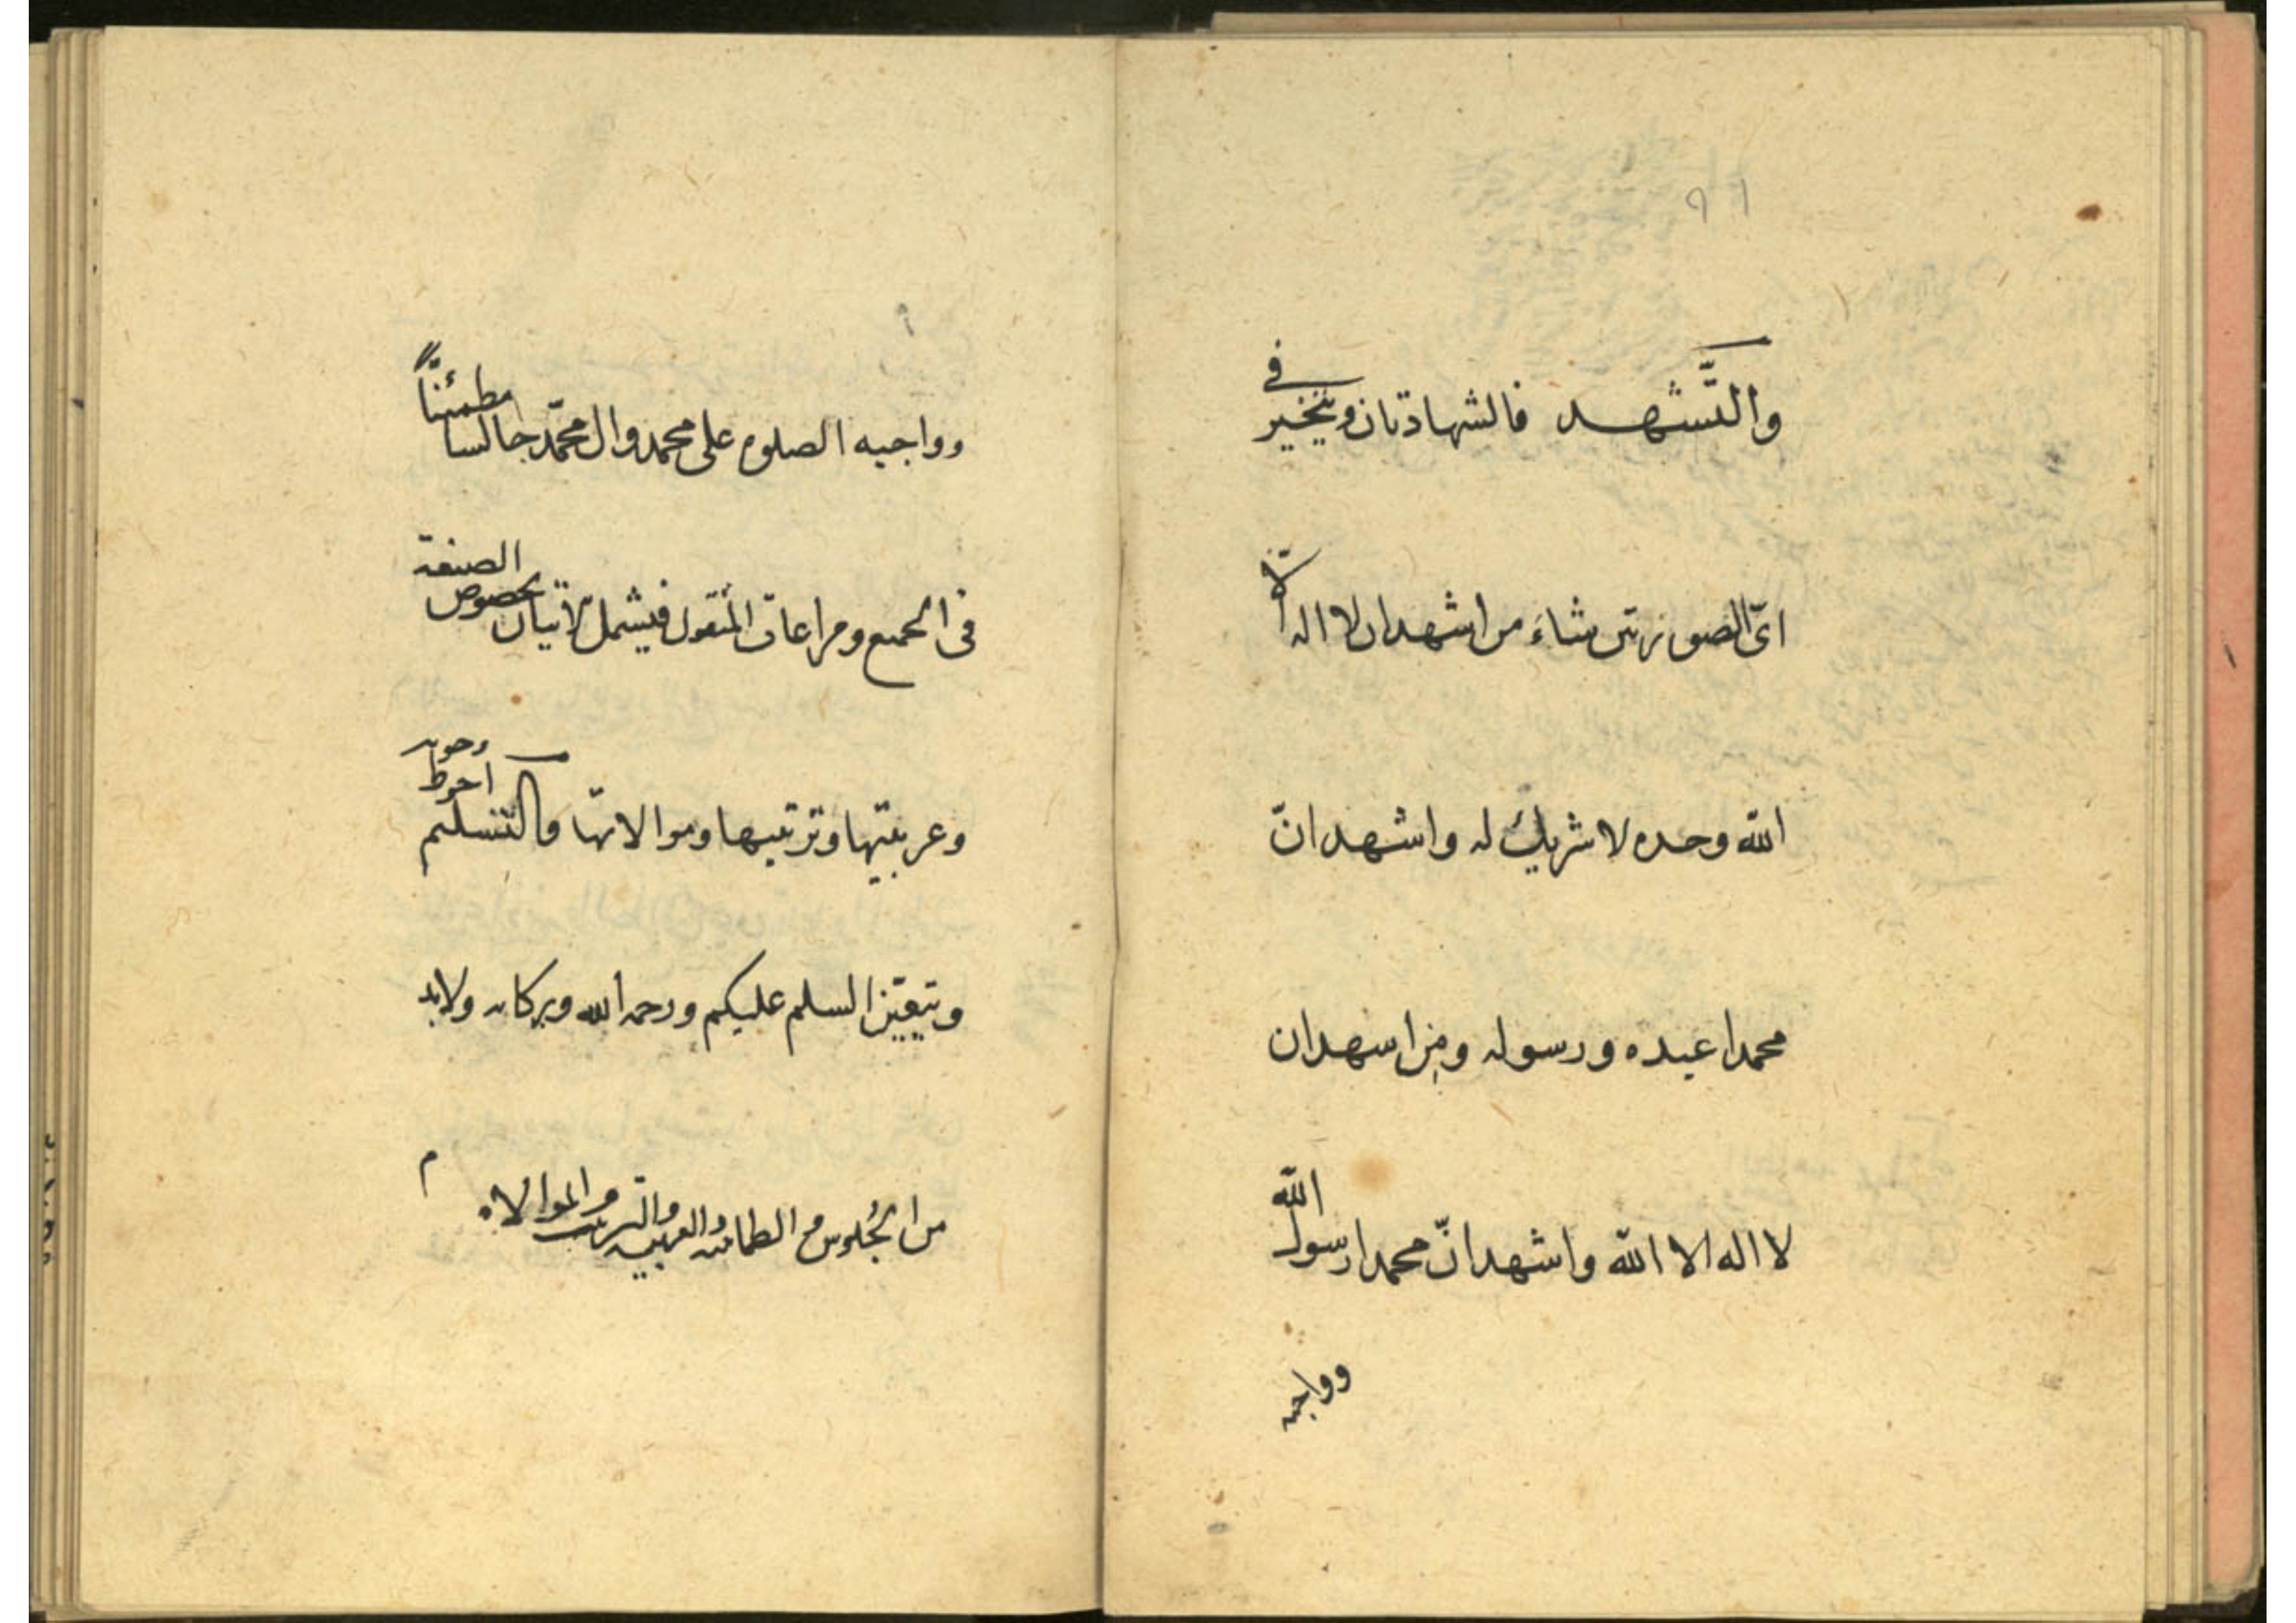 ٩١
والتَّشهد فالشهادتان ويتخير في
اىّ الصورتين شاءَ من اشهد ان لا اله الّا
الله وحده لا شريك له واشهد انّ
محمدا عبده ورسوله ومن اشهد ان
لا اله الا الله واشهد انّ محمدا رسول الله
وواجبه
وواجبه الصلوه على محمد وال محمّد جالسا مطمئنّاً
فى الجميع ومراعات المنقول فيشمل لاتيان بخصوص الصيغة
وعربيتها وترتيبها وموالاتها والتسليم وجوبه احوط
ويتعيّن السلم عليكم ورحمه الله وبركاته ولابد
من الجُلوس و الطمانينه والعربيه والترتيب والموالاه
م